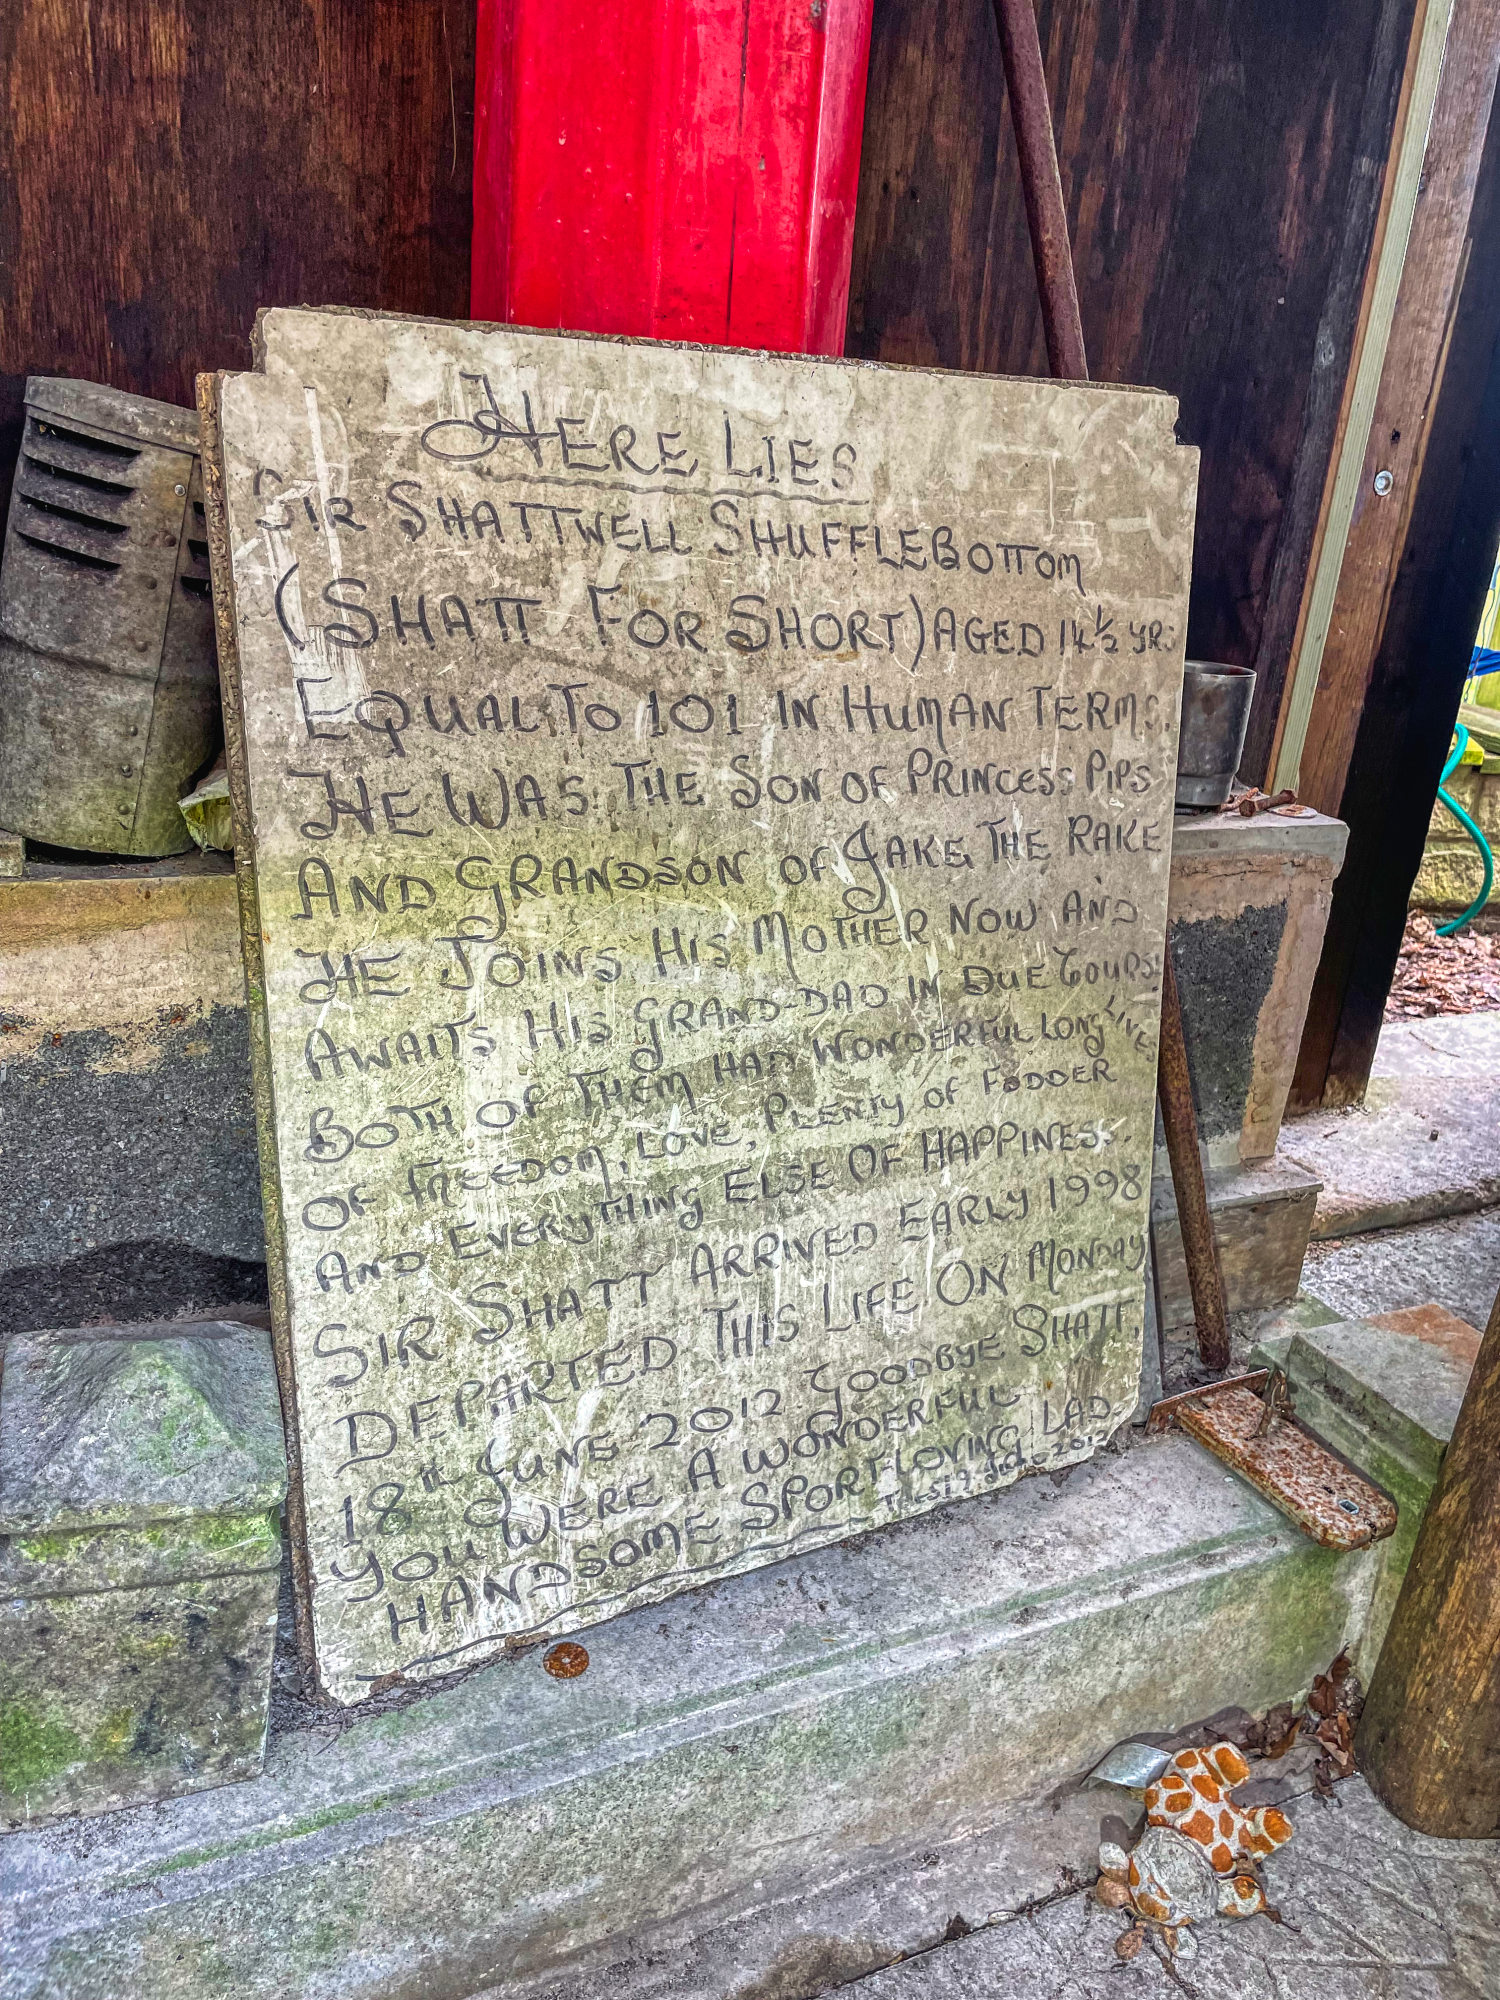 HERE LIES
SIR SHATTWELL SHUFFLEBOTTOM
(SHATT FOR SHORT) AGED 14½ YRS
EQUAL TO 101 IN HUMAN TERMS.
HE WAS THE SON OF PRINCESS PIPS
AND GRANDSON OF JAKE THE RAKE
HE JOINS HIS MOTHER NOW AND
AWAITS HIS GRAND-DAD IN DUE COURSE
BOTH OF THEM HAD WONDERFUL LONG LIVES
OF FREEDOM, LOVE, PLENTY OF FODDER
AND EVERYTHING ELSE OF HAPPINESS.
SIR SHATT ARRIVED EARLY 1998
DEPARTED THIS LIFE ON MONDAY
18TH JUNE 2012. GOODBYE SHATT,
YOU WERE A WONDERFUL
HANDSOME SPORT-LOVING LAD-
2012